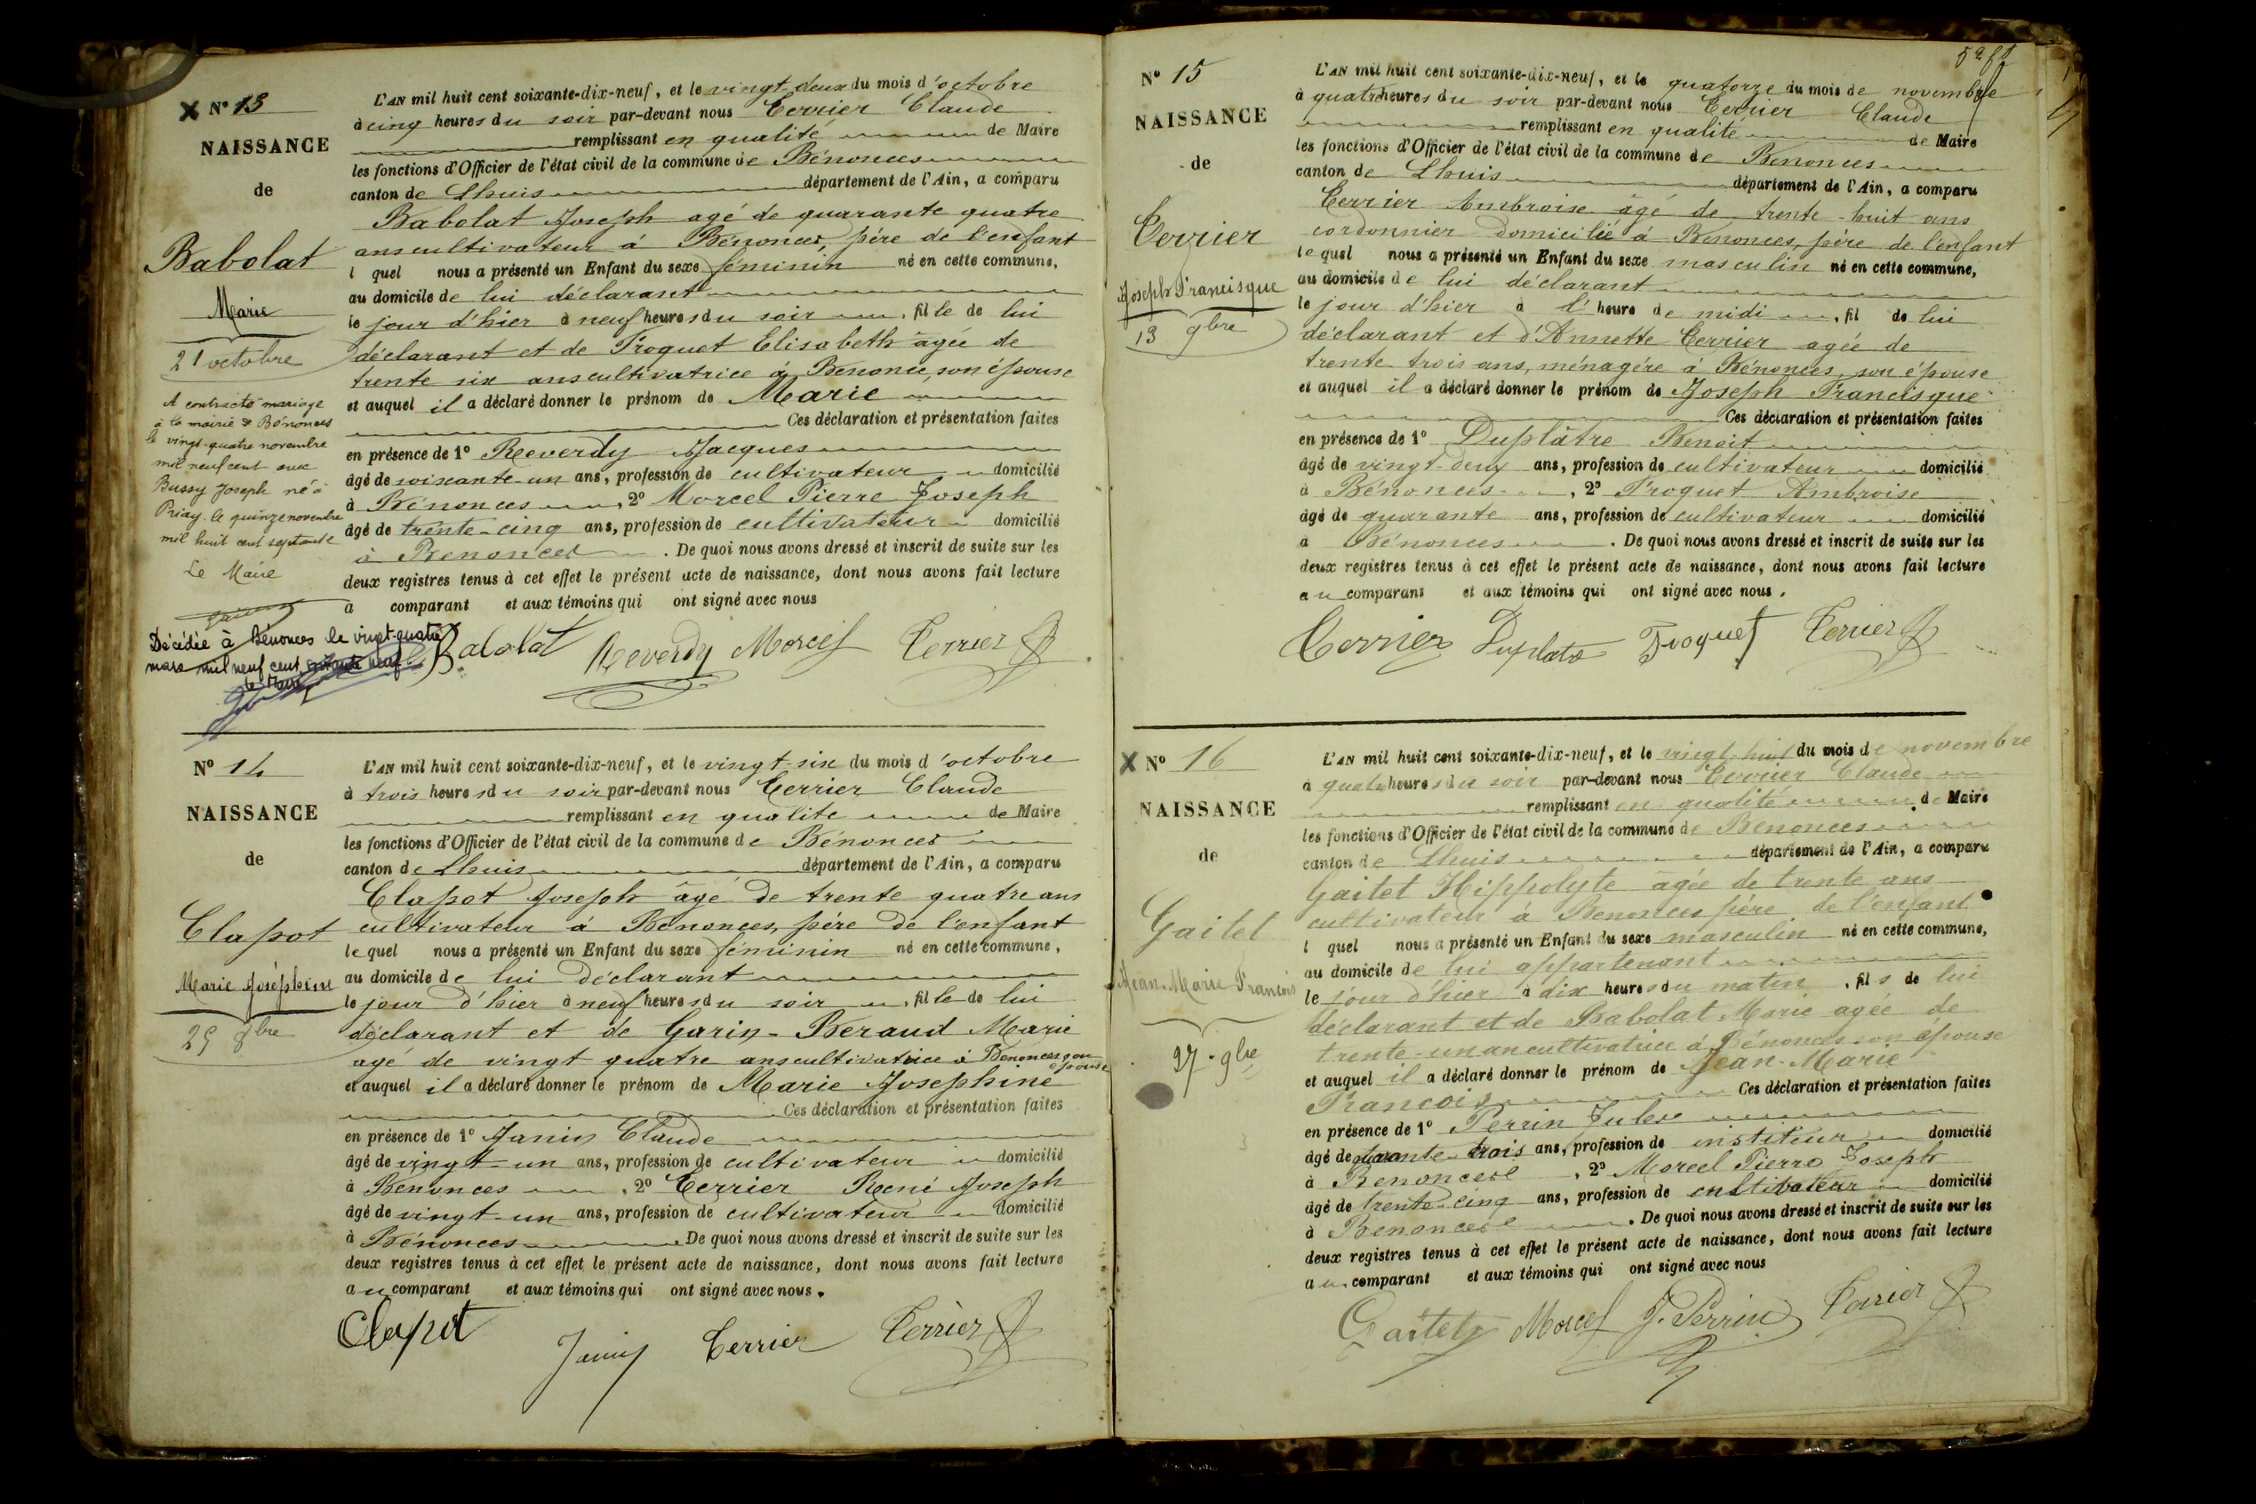 N° 13
NAISSANCE
de
Babolat
Marie
21 octobre
A contracté mariage
à la mairie de Bénonces
le vingt-quatre novembre
mil neuf cent avec
Bussy Joseph né à
Priay le quinze novembre
mil huit cent septante
Le Maire
Décédée à Bénonces le vingt-quatre
mars mil neuf cent neuf
le Maire
L'AN mil huit cent soixante-dix-neuf, et le vingt-deux du mois d'octobre
à cinq heures du soir par-devant nous Cerrier Claude
remplissant en qualité de Maire
les fonctions d'Officier de l'état civil de la commune de Bénonces
canton de Lhuis département de l'Ain, a comparu
Babolat Joseph agé de quarante quatre
ans cultivateur à Bénonces, père de l'enfant
l quel nous a présenté un Enfant du sexe féminin né en cette commune,
au domicile de lui déclarant
le jour d'hier à neuf heures du soir, fille de lui
déclarant et de Troquet Elisabeth âgée de
trente six ans cultivatrice à Benonce, son épouse
et auquel il a déclaré donner le prénom de Marie
Ces déclaration et présentation faites
en présence de 1° Reverdy Jacques
âgé de soixante-un ans, profession de cultivateur domicilié
à Bénonces, 2° Morcel Pierre Joseph
âgé de trente-cinq ans, profession de cultivateur domicilié
à Benonces. De quoi nous avons dressé et inscrit de suite sur les
deux registres tenus à cet effet le présent acte de naissance, dont nous avons fait lecture
a comparant et aux témoins qui ont signé avec nous
Babolat Reverdy Morcel Cerrier
N° 14
NAISSANCE
de
Clapot
Marie Joséphine
25 8bre
L'AN mil huit cent soixante-dix-neuf, et le vingt-six du mois d'octobre
à trois heures du soir par-devant nous Cerrier Claude
remplissant en qualité de Maire
les fonctions d'Officier de l'état civil de la commune de Bénonces
canton de Lhuis département de l'Ain, a comparu
Clapot Joseph âgé de trente quatre ans
cultivateur à Bénonces, père de l'enfant
lequel nous a présenté un Enfant du sexe féminin né en cette commune,
au domicile de lui déclarant
le jour d'hier à neuf heures du soir, fille de lui
déclarant et de Garin-Beraud Marie
agé de vingt quatre ans cultivatrice à Benonces son
épouse
et auquel il a déclaré donner le prénom de Marie Josephine
Ces déclaration et présentation faites
en présence de 1° Janin Claude
âgé de vingt-un ans, profession de cultivateur domicilié
à Benonces, 2° Cerrier René Joseph
âgé de vingt-un ans, profession de cultivateur domicilié
à Bénonces. De quoi nous avons dressé et inscrit de suite sur les
deux registres tenus à cet effet le présent acte de naissance, dont nous avons fait lecture
au comparant et aux témoins qui ont signé avec nous.
Clapot Janin Cerrier Cerrier
N° 15
NAISSANCE
de
Cerrier
Joseph Francisque
13 9bre
L'AN mil huit cent soixante-dix-neuf, et le quatorze du mois de novembre
à quatre heures du soir par-devant nous Cerrier Claude
remplissant en qualité de Maire
les fonctions d'Officier de l'état civil de la commune de Benonces
canton de Lhuis département de l'Ain, a comparu
Cerrier Ambroise âgé de trente-huit ans
cordonnier domicilié à Benonces, père de l'enfant
lequel nous a présenté un Enfant du sexe masculin né en cette commune,
au domicile de lui déclarant
le jour d'hier à l'heure de midi, fil de lui
déclarant et d'Annette Cerrier agée de
trente trois ans, ménagère à Bénonces, son épouse
et auquel il a déclaré donner le prénom de Joseph Francisque
Ces déclaration et présentation faites
en présence de 1° Duplâtre Benoit
âgé de vingt-deux ans, profession de cultivateur domicilié
à Bénonces, 2° Troquet Ambroise
âgé de quarante ans, profession de cultivateur domicilié
à Bénonces. De quoi nous avons dressé et inscrit de suite sur les
deux registres tenus à cet effet le présent acte de naissance, dont nous avons fait lecture
au comparans et aux témoins qui ont signé avec nous.
Cerrier Duplatre Troquet Cerrier
N° 16
NAISSANCE
de
Gaitet
Jean-Marie François
27 9bre
L'AN mil huit cent soixante-dix-neuf, et le vingt-huit du mois de novembre
à quatre heures du soir par-devant nous Cerrier Claude
remplissant en qualité de Maire
les fonctions d'Officier de l'état civil de la commune de Benonces
canton de Lhuis département de l'Ain, a comparu
Gaitet Hippolyte agée de trente ans
cultivateur à Benonces père de l'enfant
l quel nous a présenté un Enfant du sexe masculin né en cette commune,
au domicile de lui appartenant
le jour d'hier à dix heures du matin, fils de lui
déclarant et de Babolat Marie agée de
trente-un an cultivatrice à Bénonces son épouse
et auquel il a déclaré donner le prénom de Jean-Marie
François Ces déclaration et présentation faites
en présence de 1° Perrin Jules
âgé de quarante-trois ans, profession de instituteur domicilié
à Benonces, 2° Morcel Pierre Joseph
âgé de trente-cinq ans, profession de cultivateur domicilié
à Benonces. De quoi nous avons dressé et inscrit de suite sur les
deux registres tenus à cet effet le présent acte de naissance, dont nous avons fait lecture
au comparant et aux témoins qui ont signé avec nous
Gaitet Morcel J. Perrin Cerrier